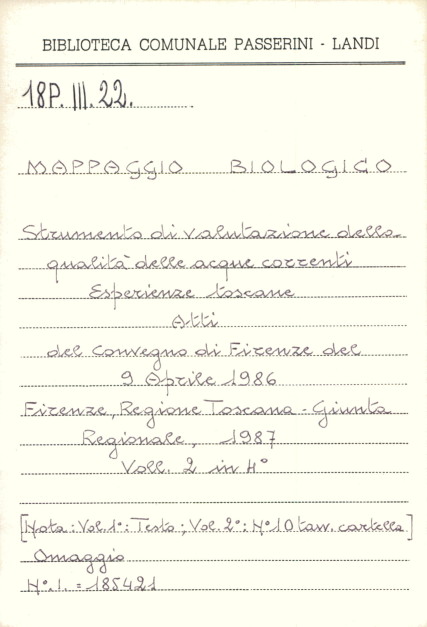 BIBLIOTECA COMUNALE PASSERINI - LANDI
18P. III. 22.
MAPPAGGIO BIOLOGICO
Strumento di valutazione della
qualità delle acque correnti
Esperienze toscane
Atti
del Convegno di Firenze del
9 Aprile 1986
Firenze, Regione Toscana - Giunta
Regionale, 1987
Voll. 2 in 4°
[Nota: Vol. 1°: Testo; Vol. 2°: N° 10 tavv. cartella]
Omaggio
N°. I. = 185421